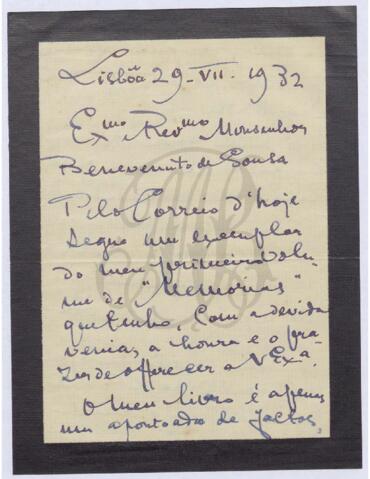 Lisbôa 29-VII. 1932
Exmo Revmo Monsenhor
Benevenuto de Sousa
Pelo Correio d'hoje
segue um exemplar
do meu primeiro volu-
me de "Memorias"
que tenho, com a devida
venia, a honra e o pra-
zer de offerecer a V Exa.
O meu livro é apenas
um apontoado de factos,